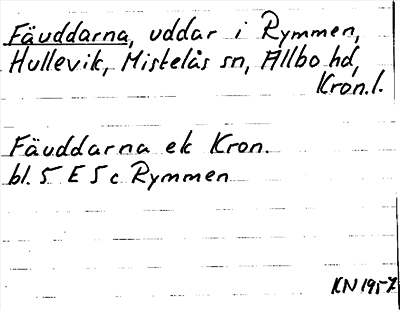 Fäuddarna, uddar i Rymmen,
Hullevik, Mistelås sn, Allbo hd,
Kron.l.
Fäuddarna ek Kron.
bl. 5 E 5 c Rymmen
KN 1957